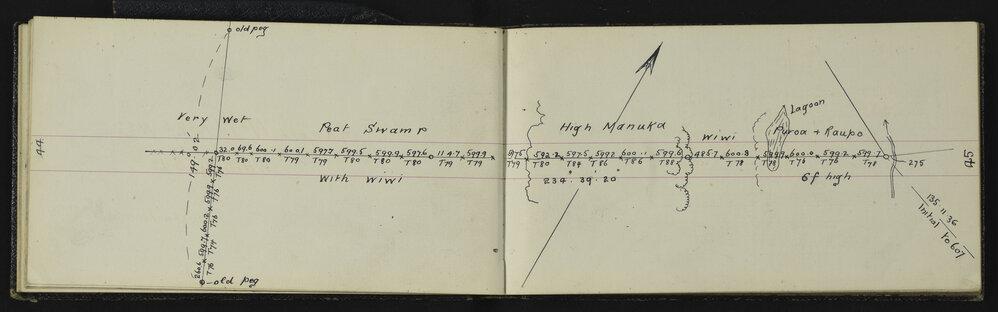 44
old peg
Very Wet
Peat Swamp
With Wiwi
149° 02'
32.0 69.6 600.1 600.1 599.5 599.9 597.6 114.7 599.9
T80 T80 T80 T79 T79 T80 T80 T80 T79 T79
old peg
High Manuka
Wiwi
Lagoon
Puroa + Raupo
592.2 597.5 599.2 600.1 599.6 485.7 600.8 600.0 599.2 599.7
T79 T80 T84 T86 T86 T88 T78 T78 T76 T76 T78
234° 39' 20"
6f high
275
45
135 11 36
Initial to 607